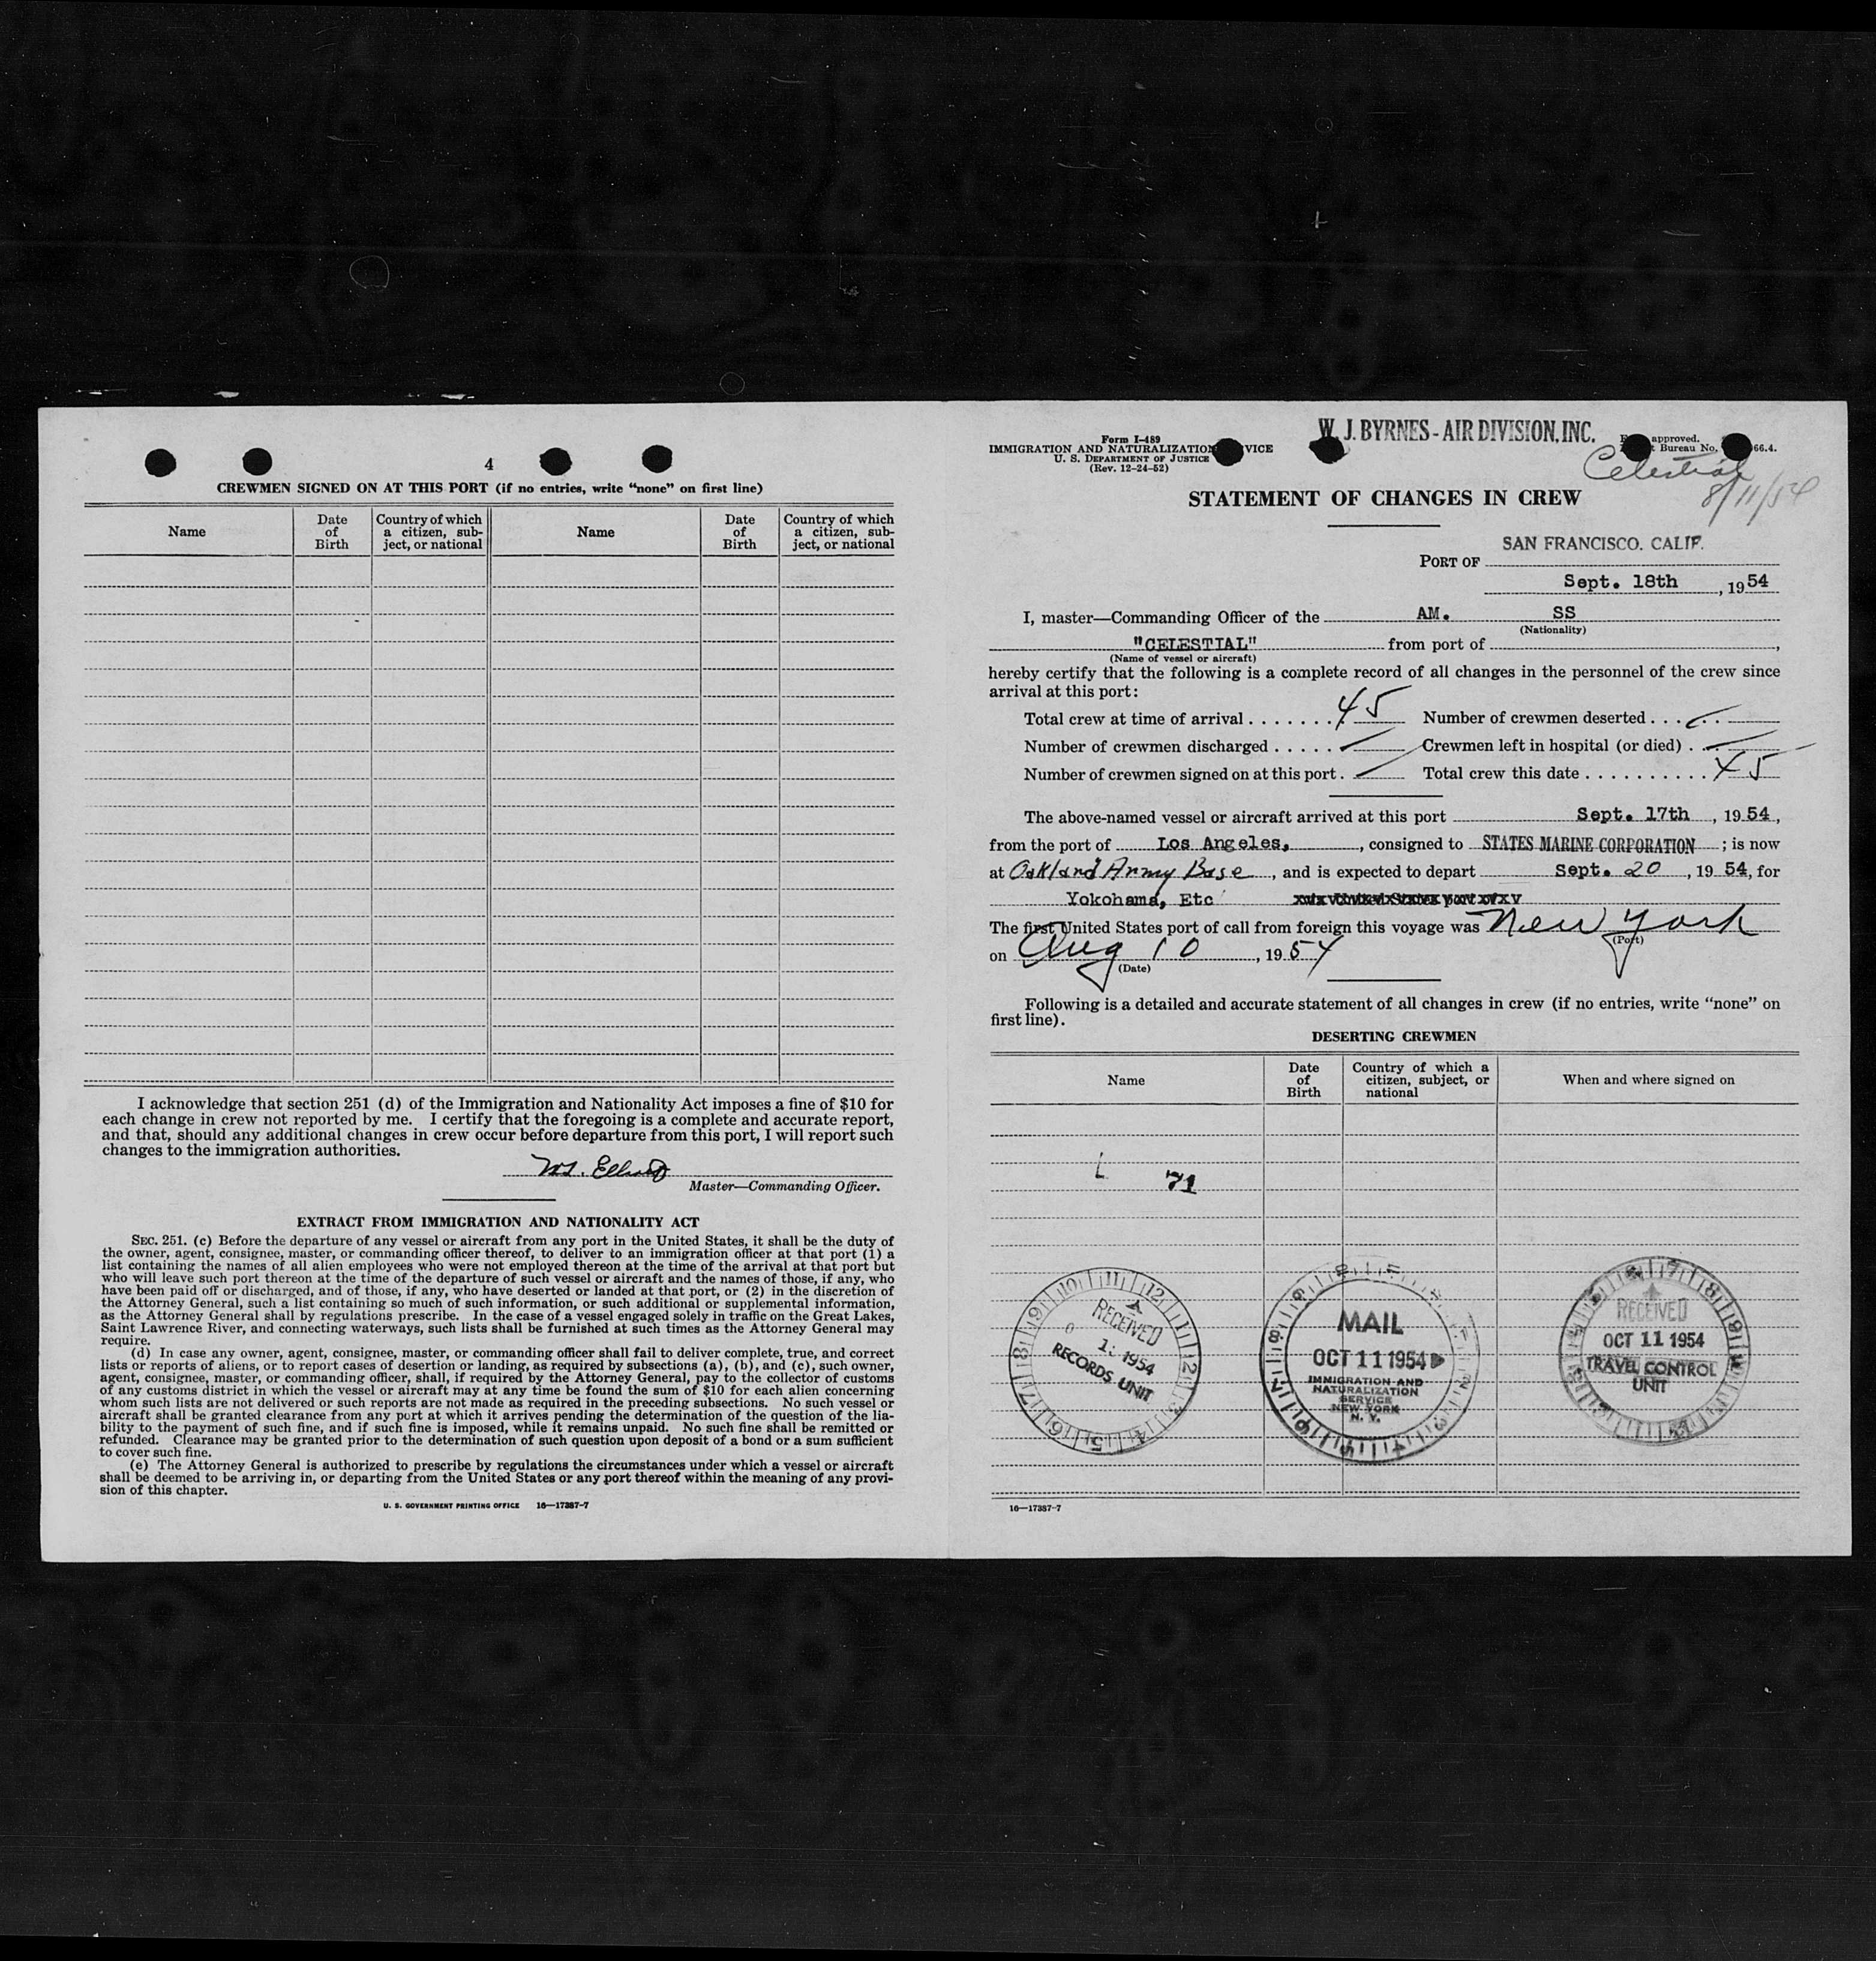 4
CREWMEN SIGNED ON AT THIS PORT (if no entries, write "none" on first line)
Name
Date of Birth
Country of which a citizen, subject, or national
Name
Date of Birth
Country of which a citizen, subject, or national
I acknowledge that section 251 (d) of the Immigration and Nationality Act imposes a fine of $10 for
each change in crew not reported by me. I certify that the foregoing is a complete and accurate report,
and that, should any additional changes in crew occur before departure from this port, I will report such
changes to the immigration authorities.
Master—Commanding Officer.
EXTRACT FROM IMMIGRATION AND NATIONALITY ACT
SEC. 251. (c) Before the departure of any vessel or aircraft from any port in the United States, it shall be the duty of
the owner, agent, consignee, master, or commanding officer thereof, to deliver to an immigration officer at that port (1) a
list containing the names of all alien employees who were not employed thereon at the time of the arrival at that port but
who will leave such port thereon at the time of the departure of such vessel or aircraft and the names of those, if any, who
have been paid off or discharged, and of those, if any, who have deserted or landed at that port, or (2) in the discretion of
the Attorney General, such a list containing so much of such information, or such additional or supplemental information,
as the Attorney General shall by regulations prescribe. In the case of a vessel engaged solely in traffic on the Great Lakes,
Saint Lawrence River, and connecting waterways, such lists shall be furnished at such times as the Attorney General may
require.
(d) In case any owner, agent, consignee, master, or commanding officer shall fail to deliver complete, true, and correct
lists or reports of aliens, or to report cases of desertion or landing, as required by subsections (a), (b), and (c), such owner,
agent, consignee, master, or commanding officer, shall, if required by the Attorney General, pay to the collector of customs
of any customs district in which the vessel or aircraft may at any time be found the sum of $10 for each alien concerning
whom such lists are not delivered or such reports are not made as required in the preceding subsections. No such vessel or
aircraft shall be granted clearance from any port at which it arrives pending the determination of the question of the lia-
bility to the payment of such fine, and if such fine is imposed, while it remains unpaid. No such fine shall be remitted or
refunded. Clearance may be granted prior to the determination of such question upon deposit of a bond or a sum sufficient
to cover such fine.
(e) The Attorney General is authorized to prescribe by regulations the circumstances under which a vessel or aircraft
shall be deemed to be arriving in, or departing from the United States or any port thereof within the meaning of any provi-
sion of this chapter.
U. S. GOVERNMENT PRINTING OFFICE 16—17387-7
Form I-489
IMMIGRATION AND NATURALIZATION VICE
U. S. DEPARTMENT OF JUSTICE
(Rev. 12-24-52)
W. J. BYRNES - AIR DIVISION, INC.
approved.
Bureau No. 66.4.
Celestial
8/11/54
STATEMENT OF CHANGES IN CREW
SAN FRANCISCO, CALIF.
PORT OF
Sept. 18th, 1954
I, master—Commanding Officer of the AM. SS
(Nationality)
"CELESTIAL" from port of ,
(Name of vessel or aircraft)
hereby certify that the following is a complete record of all changes in the personnel of the crew since
arrival at this port:
Total crew at time of arrival . . . . . . . 45 Number of crewmen deserted . . .
Number of crewmen discharged . . . . . Crewmen left in hospital (or died) .
Number of crewmen signed on at this port . Total crew this date . . . . . . . . . . 45
The above-named vessel or aircraft arrived at this port Sept. 17th, 1954,
from the port of Los Angeles, , consigned to STATES MARINE CORPORATION ; is now
at Oakland Army Base, and is expected to depart Sept. 20, 1954, for
Yokohama, Etc
The first United States port of call from foreign this voyage was New York
(Port)
on Aug 10, 1954
(Date)
Following is a detailed and accurate statement of all changes in crew (if no entries, write "none" on
first line).
DESERTING CREWMEN
Name
Date of Birth
Country of which a citizen, subject, or national
When and where signed on
71
RECEIVED
1954
RECORDS UNIT
MAIL
OCT 11 1954
IMMIGRATION AND
NATURALIZATION
SERVICE
NEW YORK
N. Y.
RECEIVED
OCT 11 1954
TRAVEL CONTROL
UNIT
16—17387-7